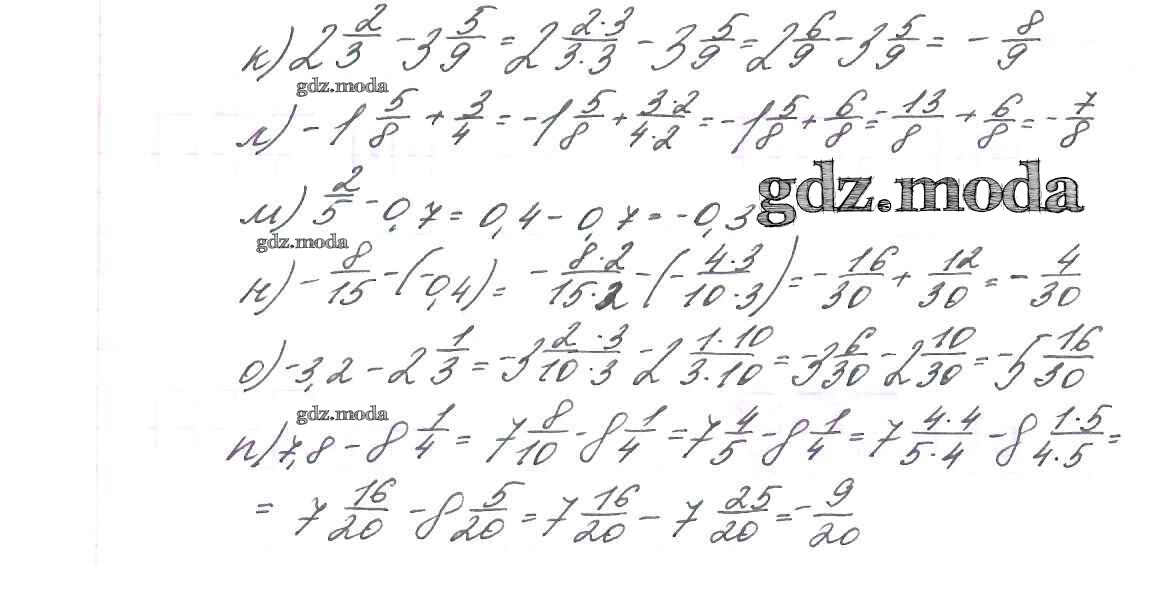 к) 2 2/3 - 3 5/9 = 2 2·3/3·3 - 3 5/9 = 2 6/9 - 3 5/9 = - 8/9
gdz.moda
л) - 1 5/8 + 3/4 = - 1 5/8 + 3·2/4·2 = - 1 5/8 + 6/8 = - 13/8 + 6/8 = - 7/8
gdz.moda
м) 2/5 - 0,7 = 0,4 - 0,7 = - 0,3
gdz.moda
н) - 8/15 - (- 0,4) = - 8·2/15·2 - (- 4·3/10·3) = - 16/30 + 12/30 = - 4/30
о) - 3,2 - 2 1/3 = - 3 2·3/10·3 - 2 1·10/3·10 = - 3 6/30 - 2 10/30 = - 5 16/30
gdz.moda
п) 7,8 - 8 1/4 = 7 8/10 - 8 1/4 = 7 4/5 - 8 1/4 = 7 4·4/5·4 - 8 1·5/4·5 =
= 7 16/20 - 8 5/20 = 7 16/20 - 7 25/20 = - 9/20